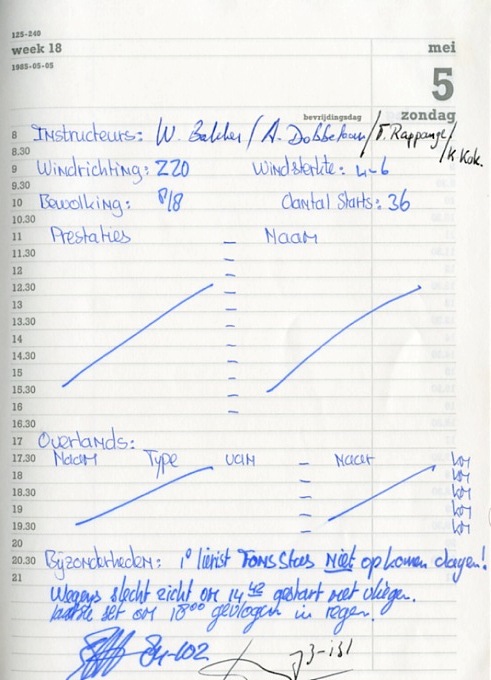 125-240
week 18
mei
1985-05-05
5
bevrijdingsdag
zondag
8 Instructeurs: W. Bakker / A. Dobbelaar / F. Rappange / K Kok.
8.30
9 Windrichting: ZZO Windsterkte: 4-6
9.30
10 Bewolking: 8/8 Aantal Starts: 36
10.30
11 Prestaties — Naam
11.30 —
12 —
12.30 —
13 —
13.30 —
14 —
14.30 —
15 —
15.30 —
16 —
16.30
17 Overlands:
17.30 Naam Type van — Naar km
18 — km
18.30 — km
19 — km
19.30 — km
20
20.30 Bijzonderheden: 1e lierist Fons Stoes Niet op komen dagen!
21
Wegens slecht zicht om 14 gestart met vliegen.
laatste set om 18°° gevlogen in regen.